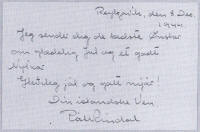 Reykjavík, den 8 Dec.
1944.
Jeg sender dig de bedste Ønsker
om glædelig Jul og et godt
Nytaar
Gleðileg jól og gott nýár!
Din islandske Ven
Páll